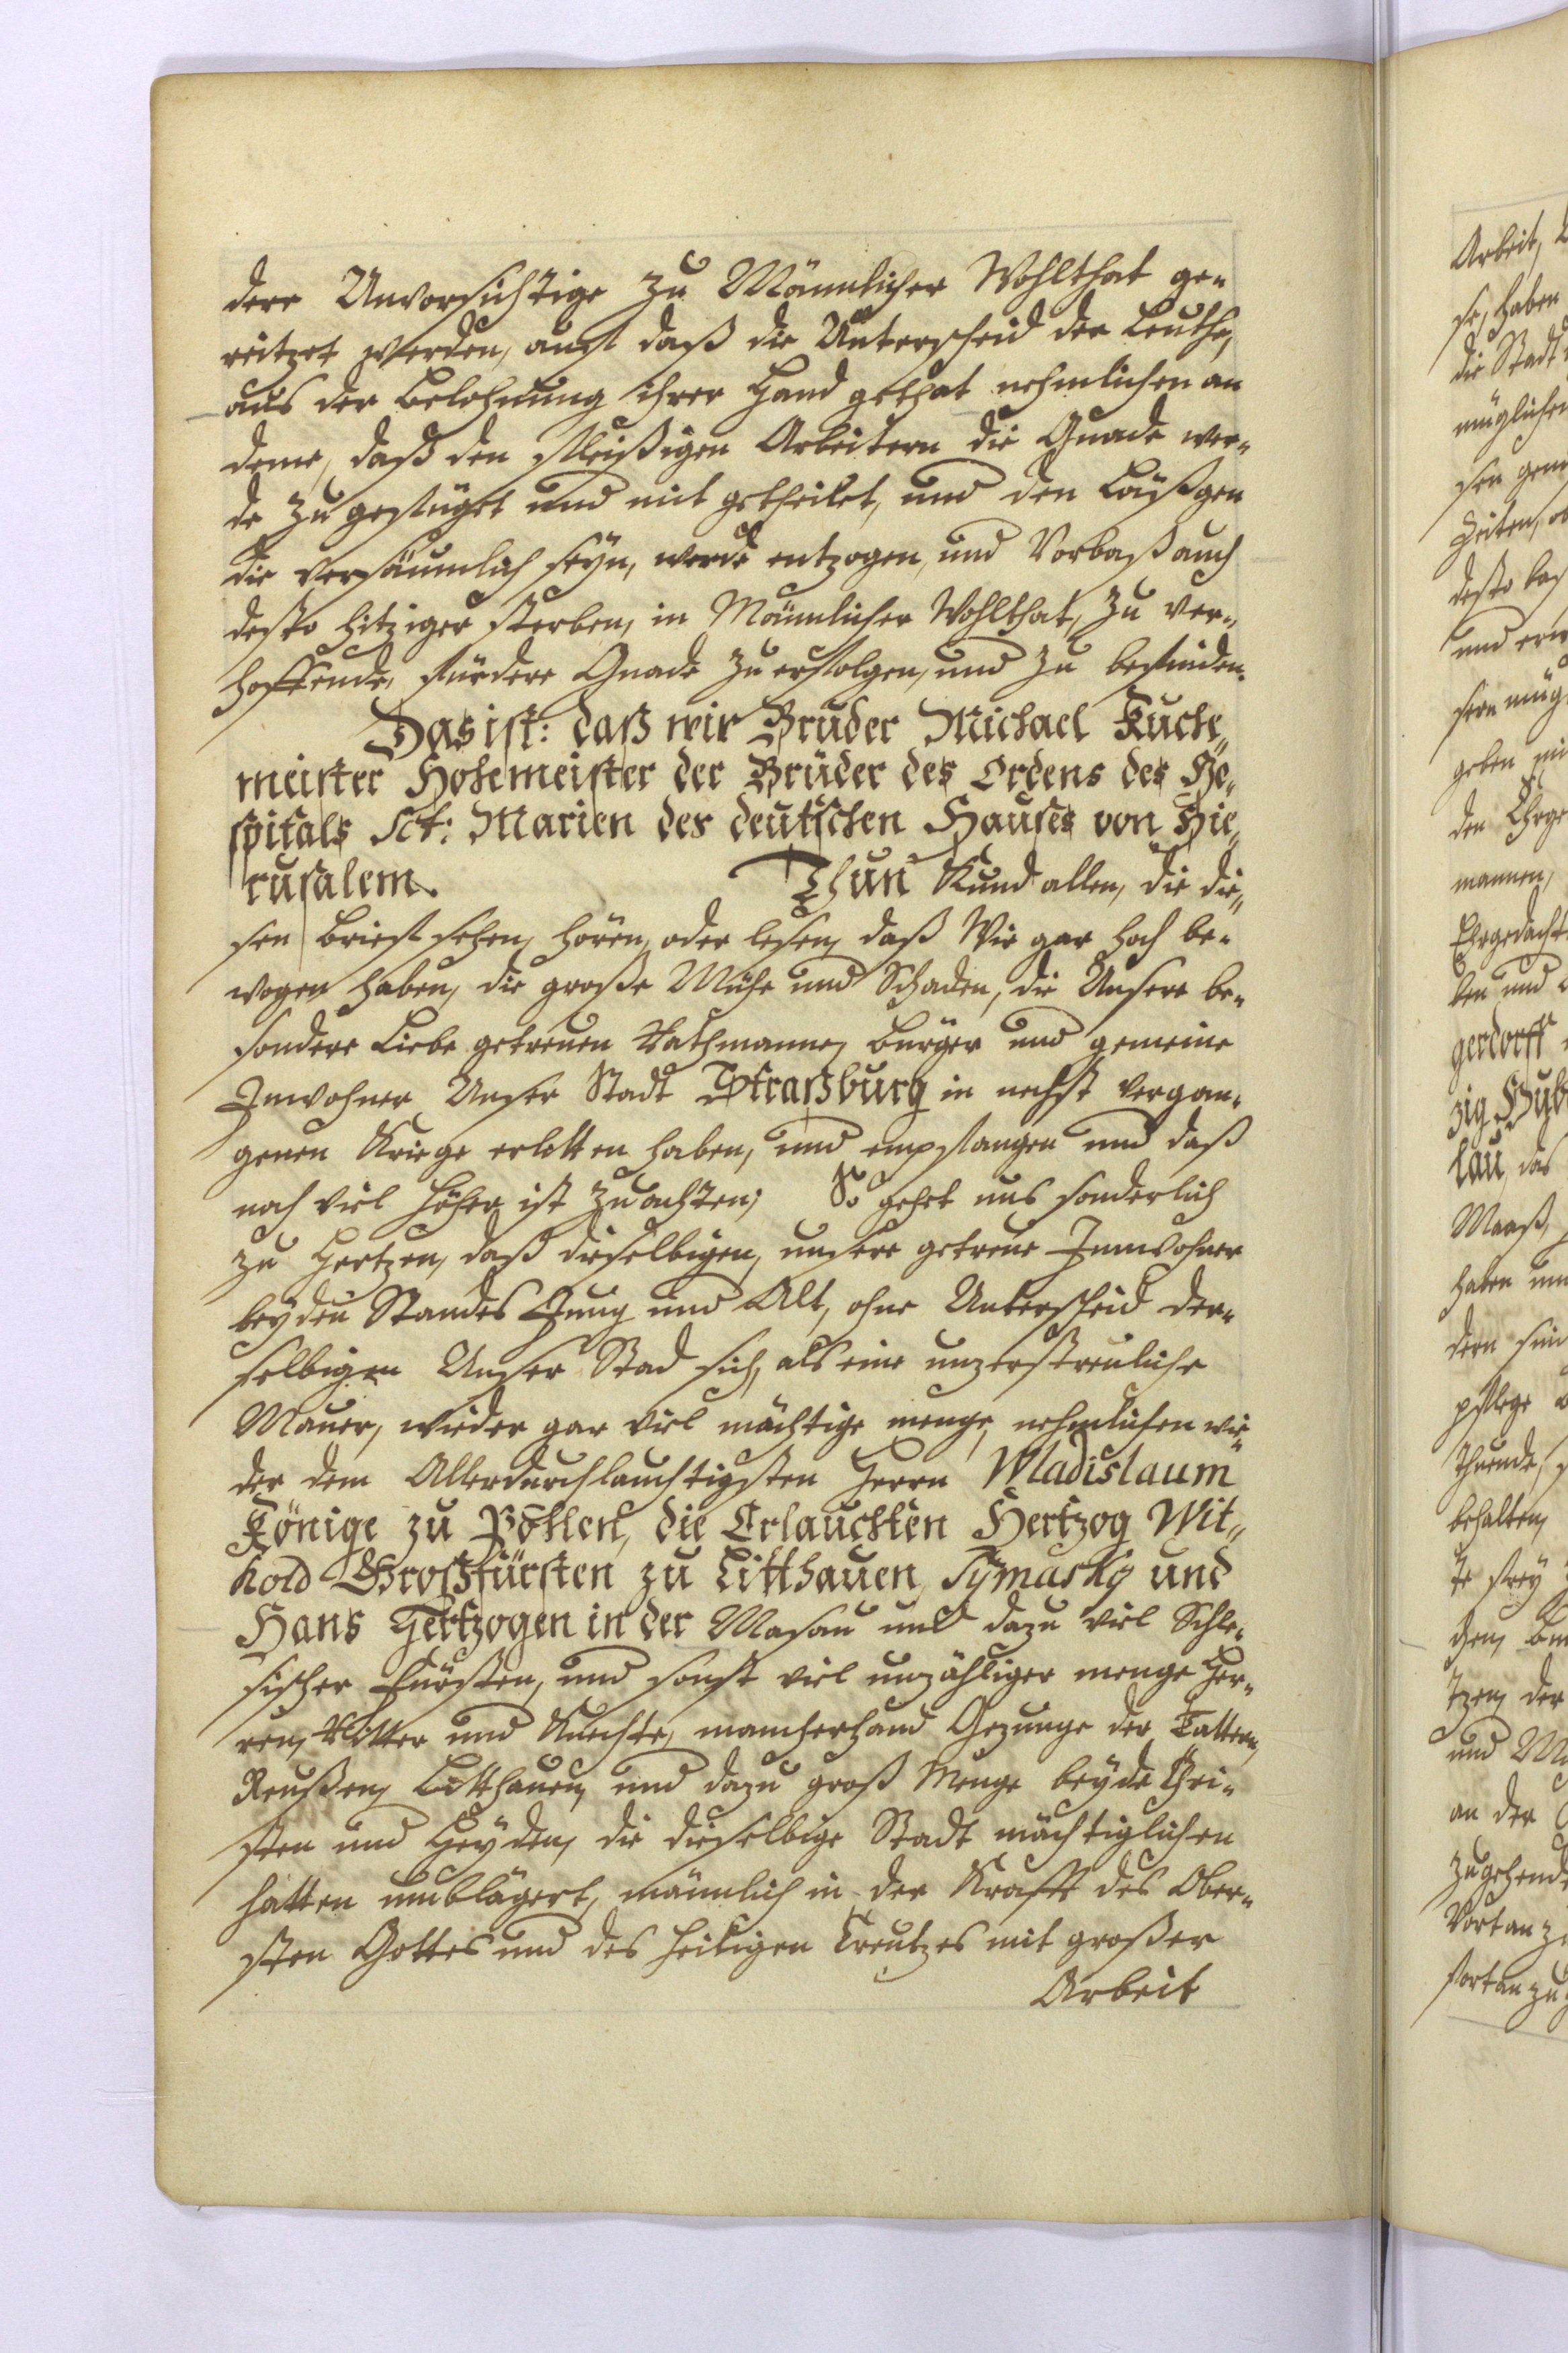 dere Unvorsichtige zu Männlicher Wohlthat ge-
reitzet werden, auch daß die Unterscheid der Leuthe,
aus der Belohnung ihrer Hand gethat nehmlichen an
deme, daß den fleißigen Arbeitern die Gnade wer-
de zugefüget und mit getheilet, und den Läßgen
die versäumlich seyn, werde entzogen, und Vorbaß auch
desto hitziger sterben, in Männlicher Wohlthat, zu ver-
hoffende, fürdere Gnade zu erfolgen, und zu befinden.
Das ist: daß wir Bruder Michael Kuche-
meister Hohemeister der Brüder des Ordens des Ho-
spitals Sct: Marien des deutschen Hauses von Hie-
rusalem. Thun Kund allen, die die-
sen Brieff sehen, hören, oder lesen, daß Wir gar hoch be-
wogen haben, die große Mühe und Schaden, die Unsere be-
sondere Liebe getreuen Rathmanne, Bürger und gemeine
Inwohner Unser Stadt Straßburg in nechst vergan-
genen Kriege erlitten haben, und empfangen und daß
noch viel höher ist zu achten; So gehet uns sonderlich
zu Hertzen, daß dieselbigen, unsere getreue Innwohner
beyden Standes Jung und Alt, ohne Unterscheid der-
selbigen Unser Stad sich, als eine unzerstreuliche
Mauer, wieder gar viel mächtige menge, nehmlichen wie-
der dem Allerdurchlauchtigsten Herrn Wladislaum
Könige zu Pohlen, die Erlauchten Hertzog Wit-
hold Großfürsten zu Litthauen, Symasky und
Hans Hertzogen in der Masau und dazu viel Schle-
sischer Fürsten, und sonst viel unzähliger menge Her-
ren, Ritter und Knechte, mancherhand Gezunge der Tattern,
Reußen, Litthauen, und dazu groß Menge beyde Chri-
sten und Heyden, die dieselbige Stadt mächtiglichen
hatten umblägert, männlich in der Krafft des Ober-
sten Gottes und des heiligen Creutzes mit großer
Arbeit
Arbeit,
se, haben
die Stadt
müglichen
sen gem
Zeiten, ob
desto baß
und erw
sern müg
geben mi
den Ehrge
mannen,
Ehrgedacht
ben und
gerdorff
zig Hub
lau, das
Maaß,
haben un
dern sin
pflege
thuende,
behalten,
te frey
chen,
tzen, der
und M
an der
zugehende
Vortan z
fortan zu